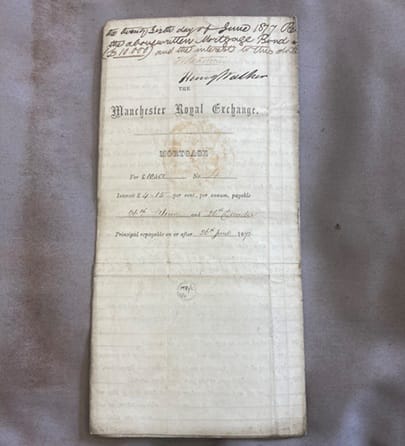 the twenty sixth day of June 1877 Re
the abovewritten Mortgage Bond
(£10.000) and the interest to this date
Henry Walker
THE
Manchester Royal Exchange.
MORTGAGE
For £ No
Interest £4-15 per cent, per annum, payable
26th and 26th
Principal repayable on or after 26th June 187